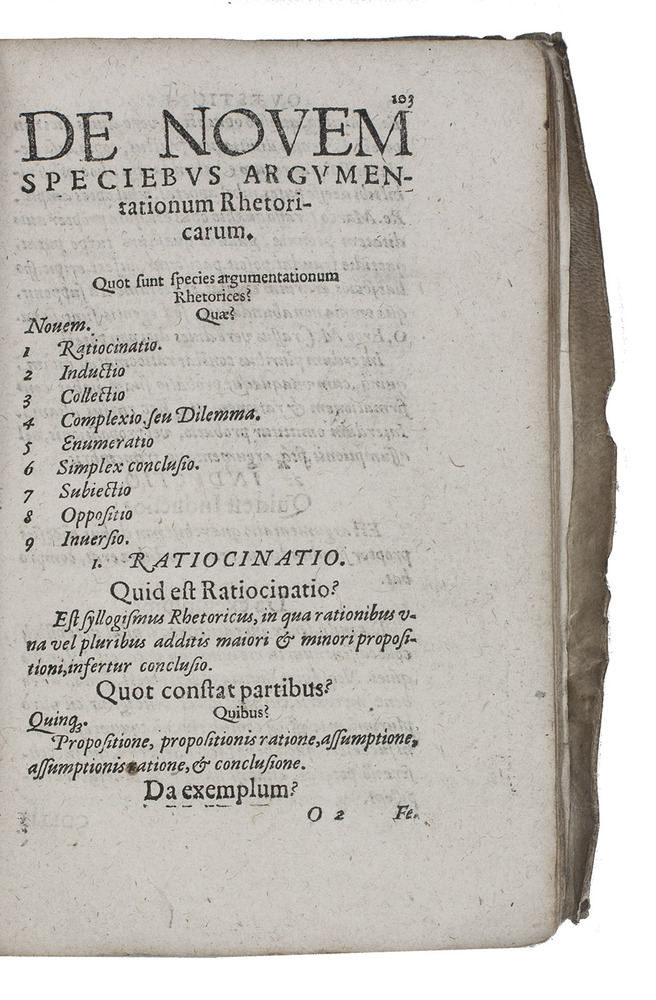 103
DE NOVEM
SPECIEBVS ARGVMEN-
tationum Rhetori-
carum.
Quot ſunt ſpecies argumentationum
Rhetorices?
Quæ?
Nouem.
1 Ratiocinatio.
2 Inductio
3 Collectio
4 Complexio, ſeu Dilemma.
5 Enumeratio
6 Simplex concluſio.
7 Subiectio
8 Oppoſitio
9 Inuerſio.
1. RATIOCINATIO.
Quid eſt Ratiocinatio?
Eſt ſyllogiſmus Rhetoricus, in qua rationibus v-
na vel pluribus additis maiori & minori propoſi-
tioni, infertur concluſio.
Quot conſtat partibus?
Quinqꝫ.
Quibus?
Propoſitione, propoſitionis ratione, aſſumptione,
aſſumptionis ratione, & concluſione.
Da exemplum?
O 2 Fe.